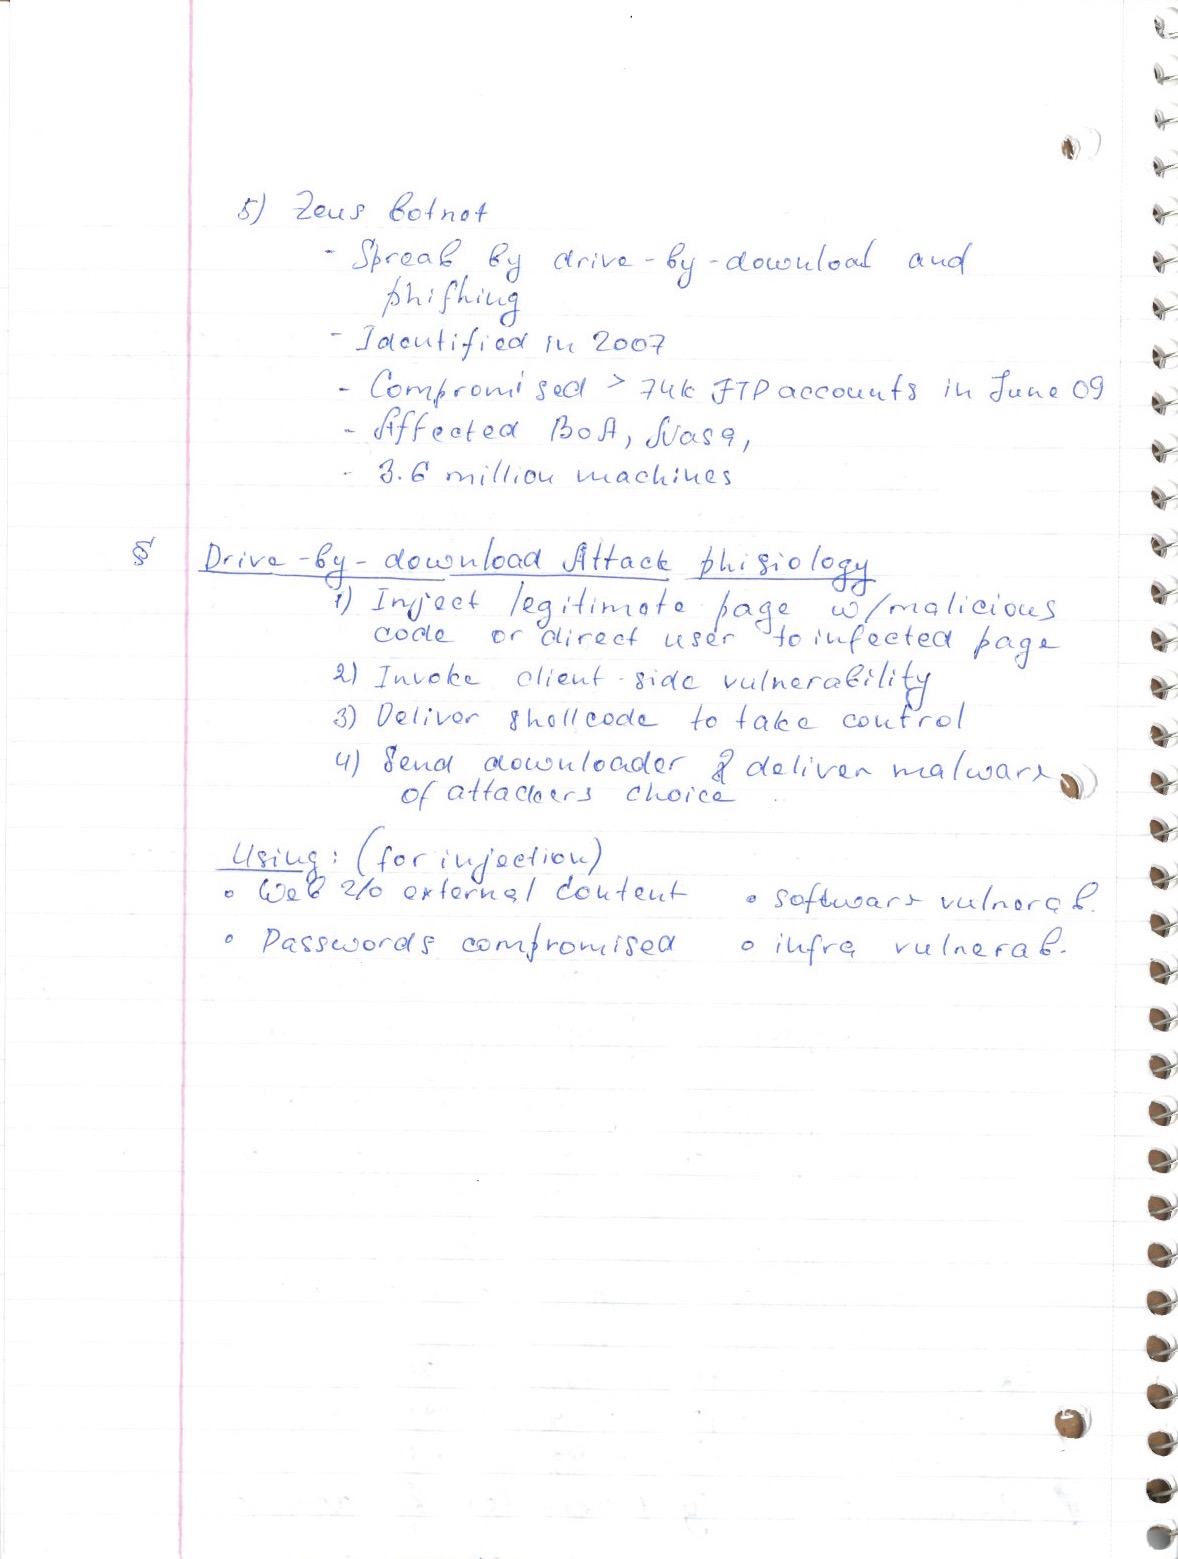 5) Zeus botnet
- Spread by drive-by-download and
phifhing
- Identified in 2007
- Compromised > 74k FTP accounts in June 09
- Affected BoA, Nasa,
- 3.6 million machines
§ Drive-by-download Attack phisiology
1) Inject legitimate page w/malicious
code or direct user to infected page
2) Invoke client-side vulnerability
3) Deliver shellcode to take control
4) Send downloader & deliver malware
of attackers choice
Using: (for injection)
• Web 2/0 external content • software vulnerab.
• Passwords compromised • infra vulnerab.